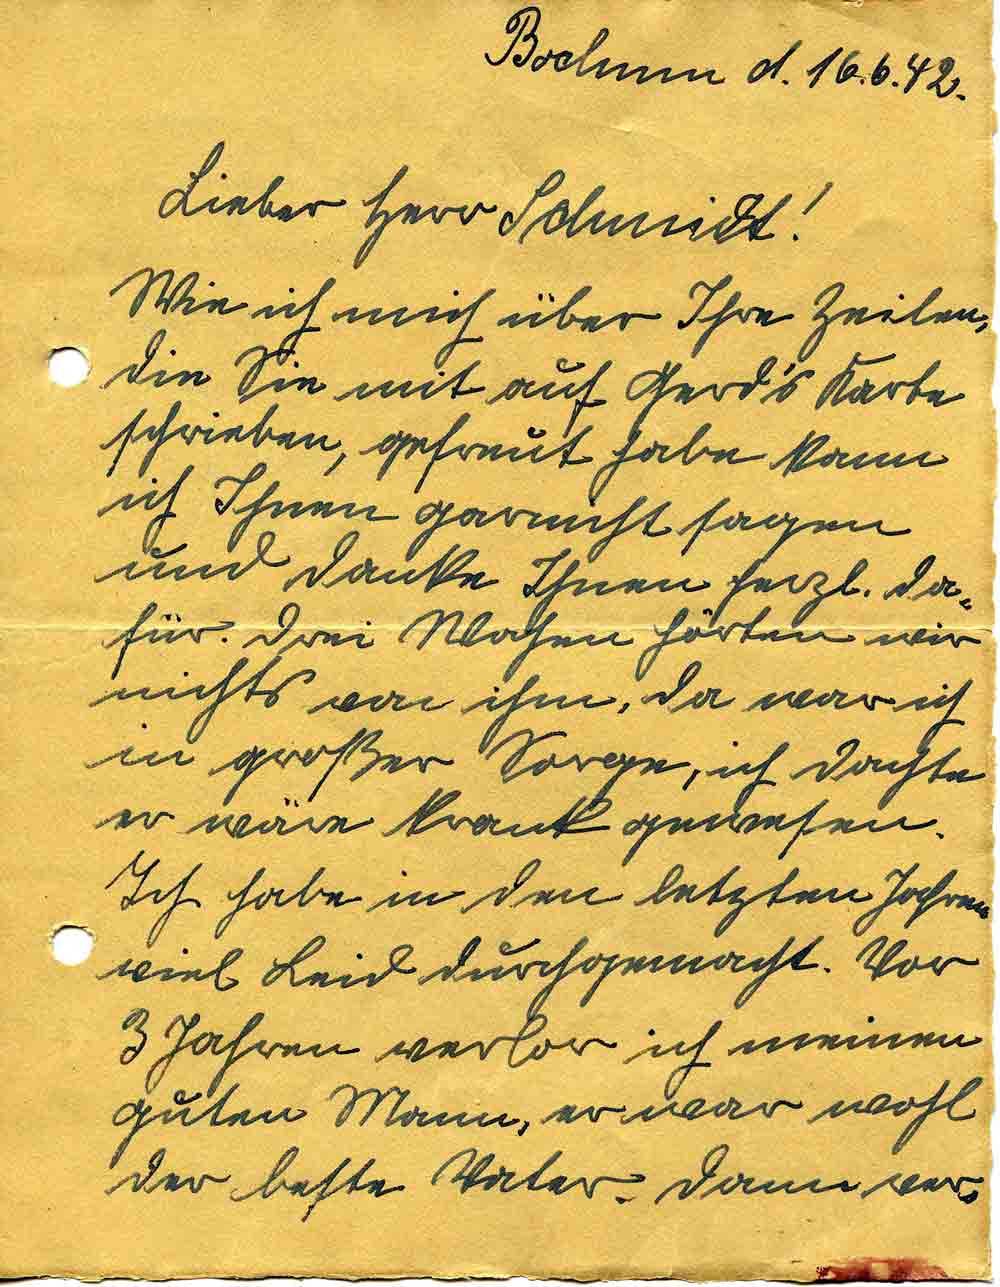 Bochum d. 16.6.42.
Lieber Herr Schmidt!
Wie ich mich über Ihre Zeilen,
die Sie mit auf Gerd's Karte
schrieben, gefreut habe kann
ich Ihnen garnicht sagen
und danke Ihnen herzl. da-
für. Drei Wochen hörten wir
nichts von ihm, da war ich
in großer Sorge, ich dachte
er wäre krank gewesen.
Ich habe in den letzten Jahren
viel Leid durchgemacht. Vor
3 Jahren verlor ich meinen
guten Mann, er war wohl
der beste Vater. Dann ver-